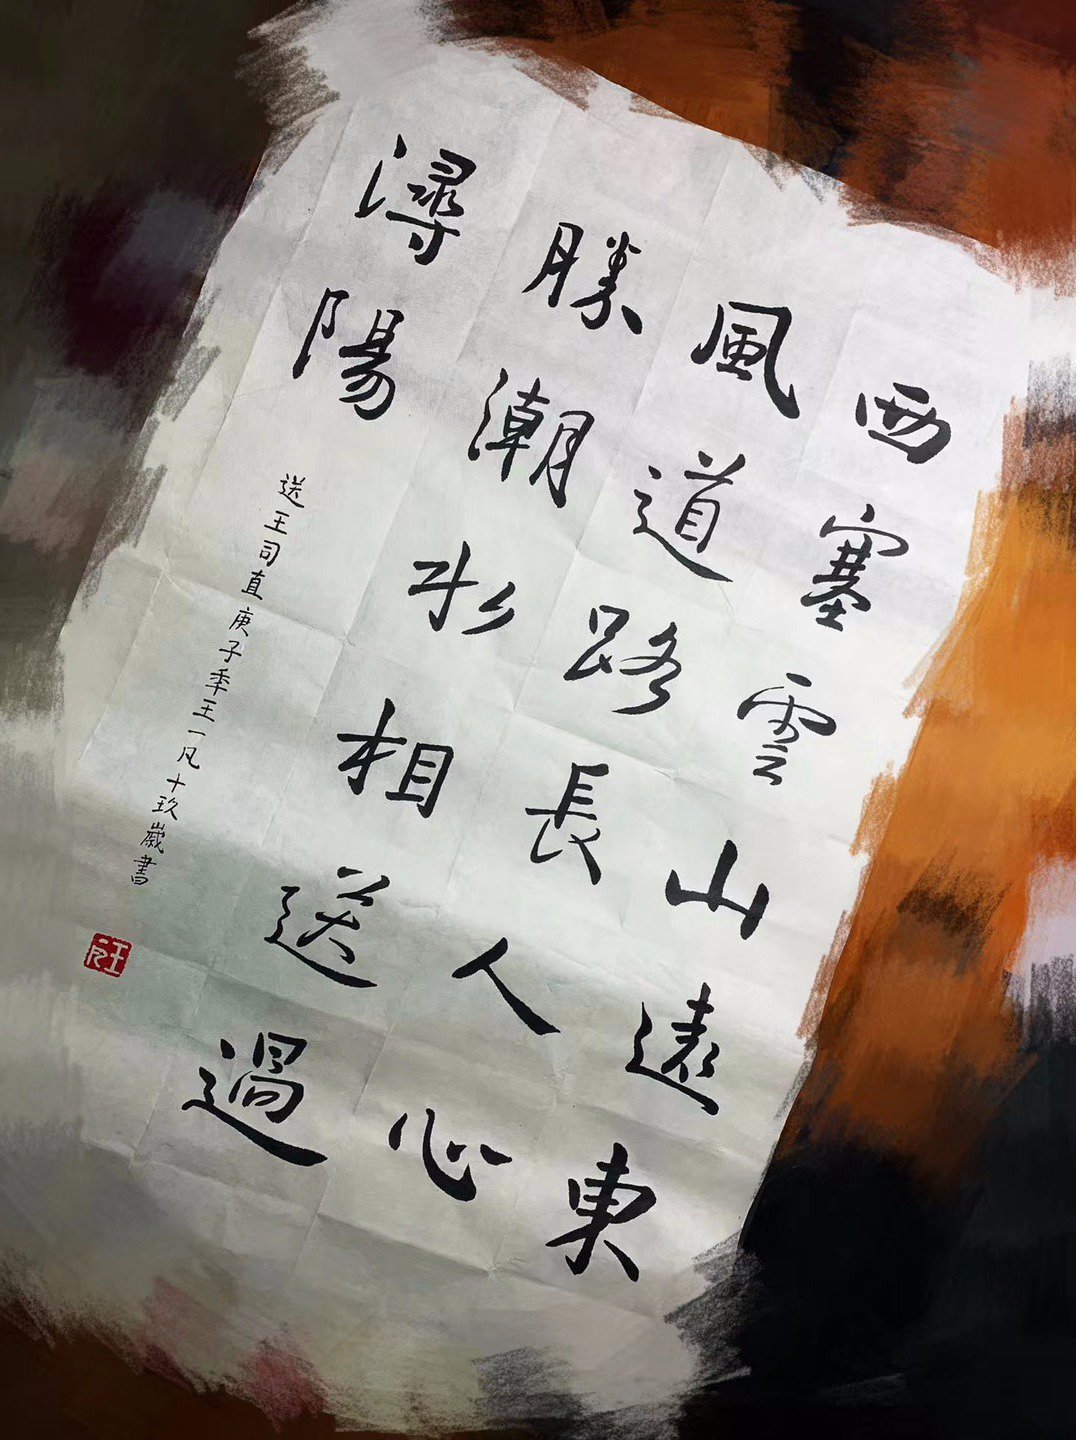 西塞雲山遠東
風道路長人心
勝潮水相送過
潯陽
送王司直庚子秊王一凡十玖歲書